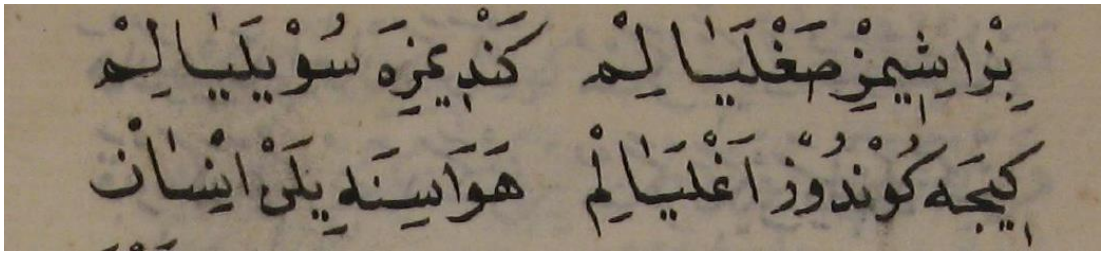 بِزْ اِشِيمِزْ صَغْلَيَا لِمْ كَنْدِيمِزَه سُوْيلَيَا لِمْ
كِيجَه كُونْدُوزْ اَغْلَيَا لِمْ هَوَاسِنَه يِلَنْ اِنْسَانْ